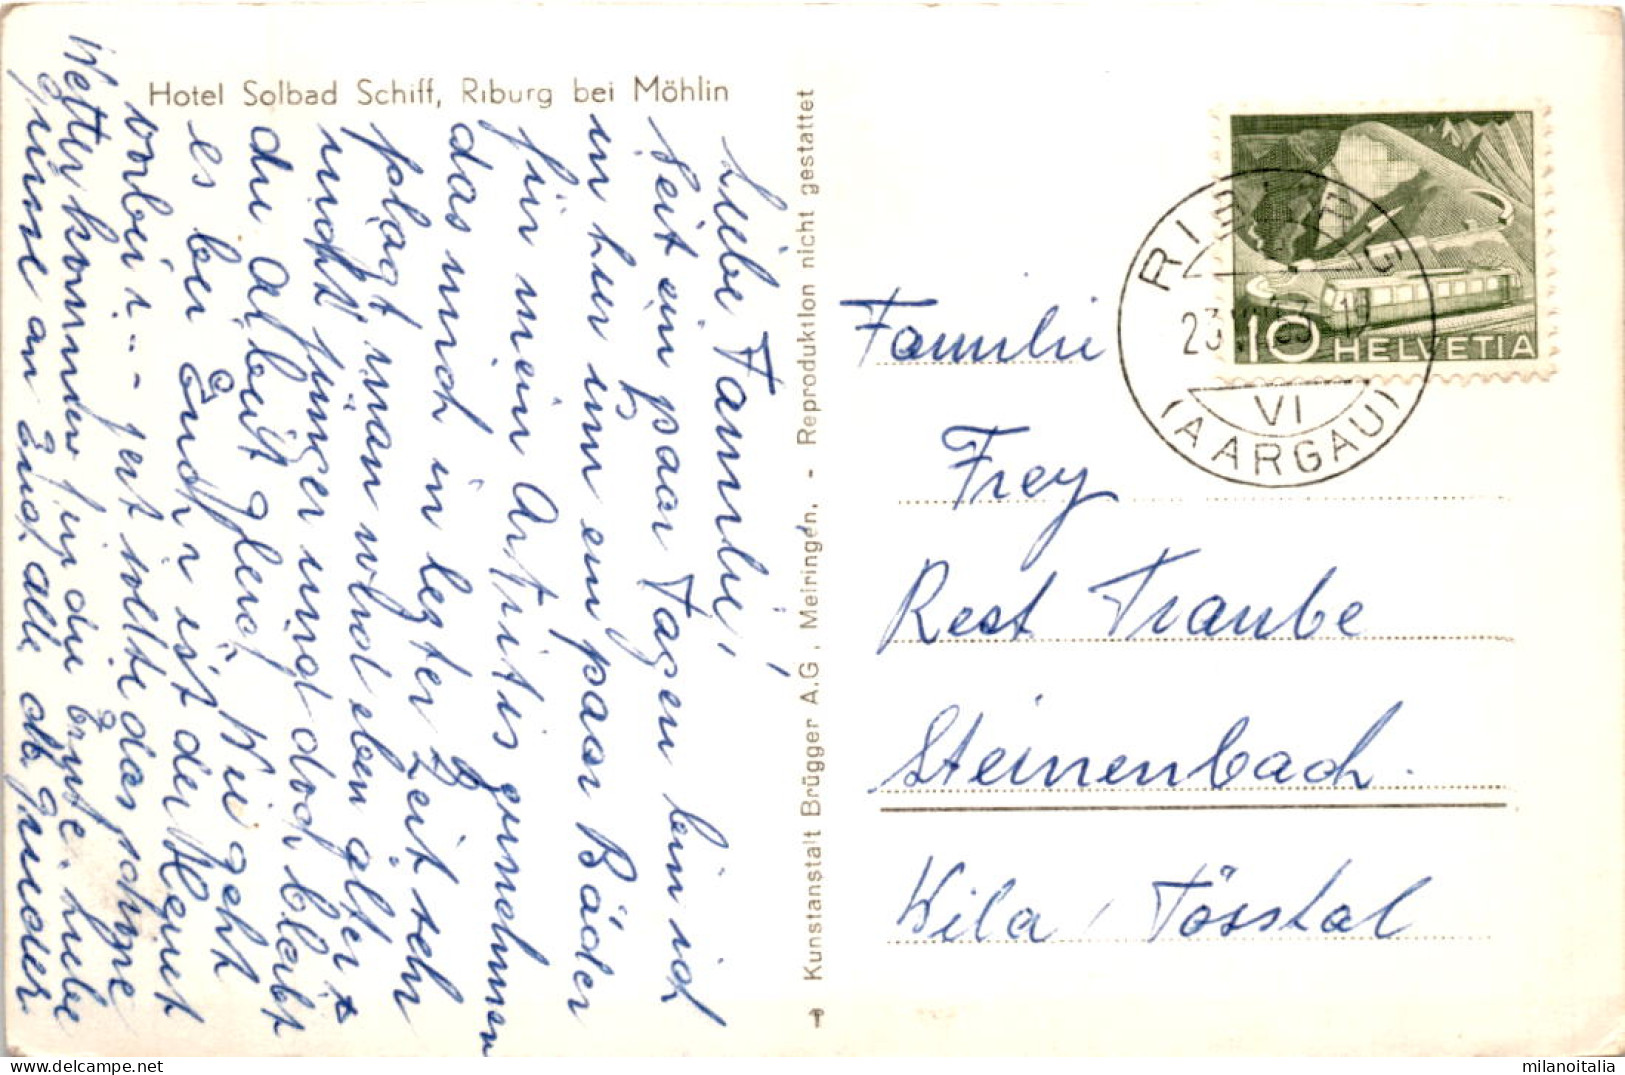 Hotel Solbad Schiff, Riburg bei Möhlin
Liebe Familie,
Seit ein paar Tagen bin ich
in hier um ein paar Bäder
für mein Artritis zu nehmen
das mich in lezter Zeit sehr
plagt, man wird eben älter +
nicht jünger und doch bleibt
die Arbeit gleich. Wie geht
es bei Euch, ist der Heuet
vorbei, jezt sollte das schöne
Wetter kommen für die Ernte. Liebe
Grüsse an Euch alle
Kunstanstalt Brügger A.G., Meiringen. - Reproduktion nicht gestattet
HELVETIA
10
RIBURG
23
VI
(AARGAU)
Familie
Frey
Rest Traube
Steinenbach.
Wila, Tösstal
milanoitalia